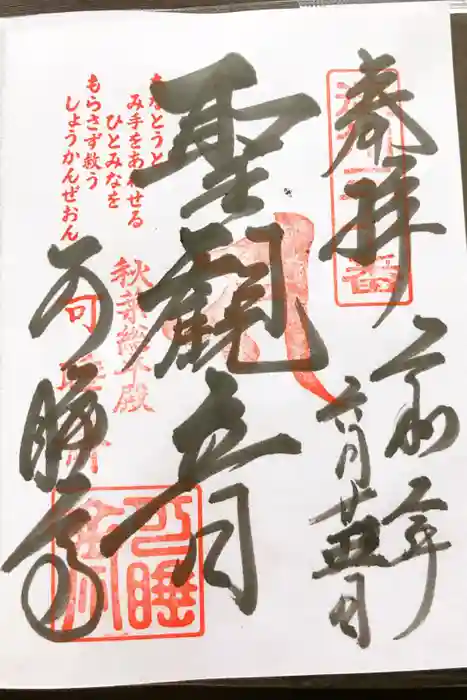 奉拝
令和二年
六月廿五日
聖観音
もらさず救う
しょうかんぜおん
み手をあわせる
ひとみなを
秋葉総本殿
可睡斎
可睡